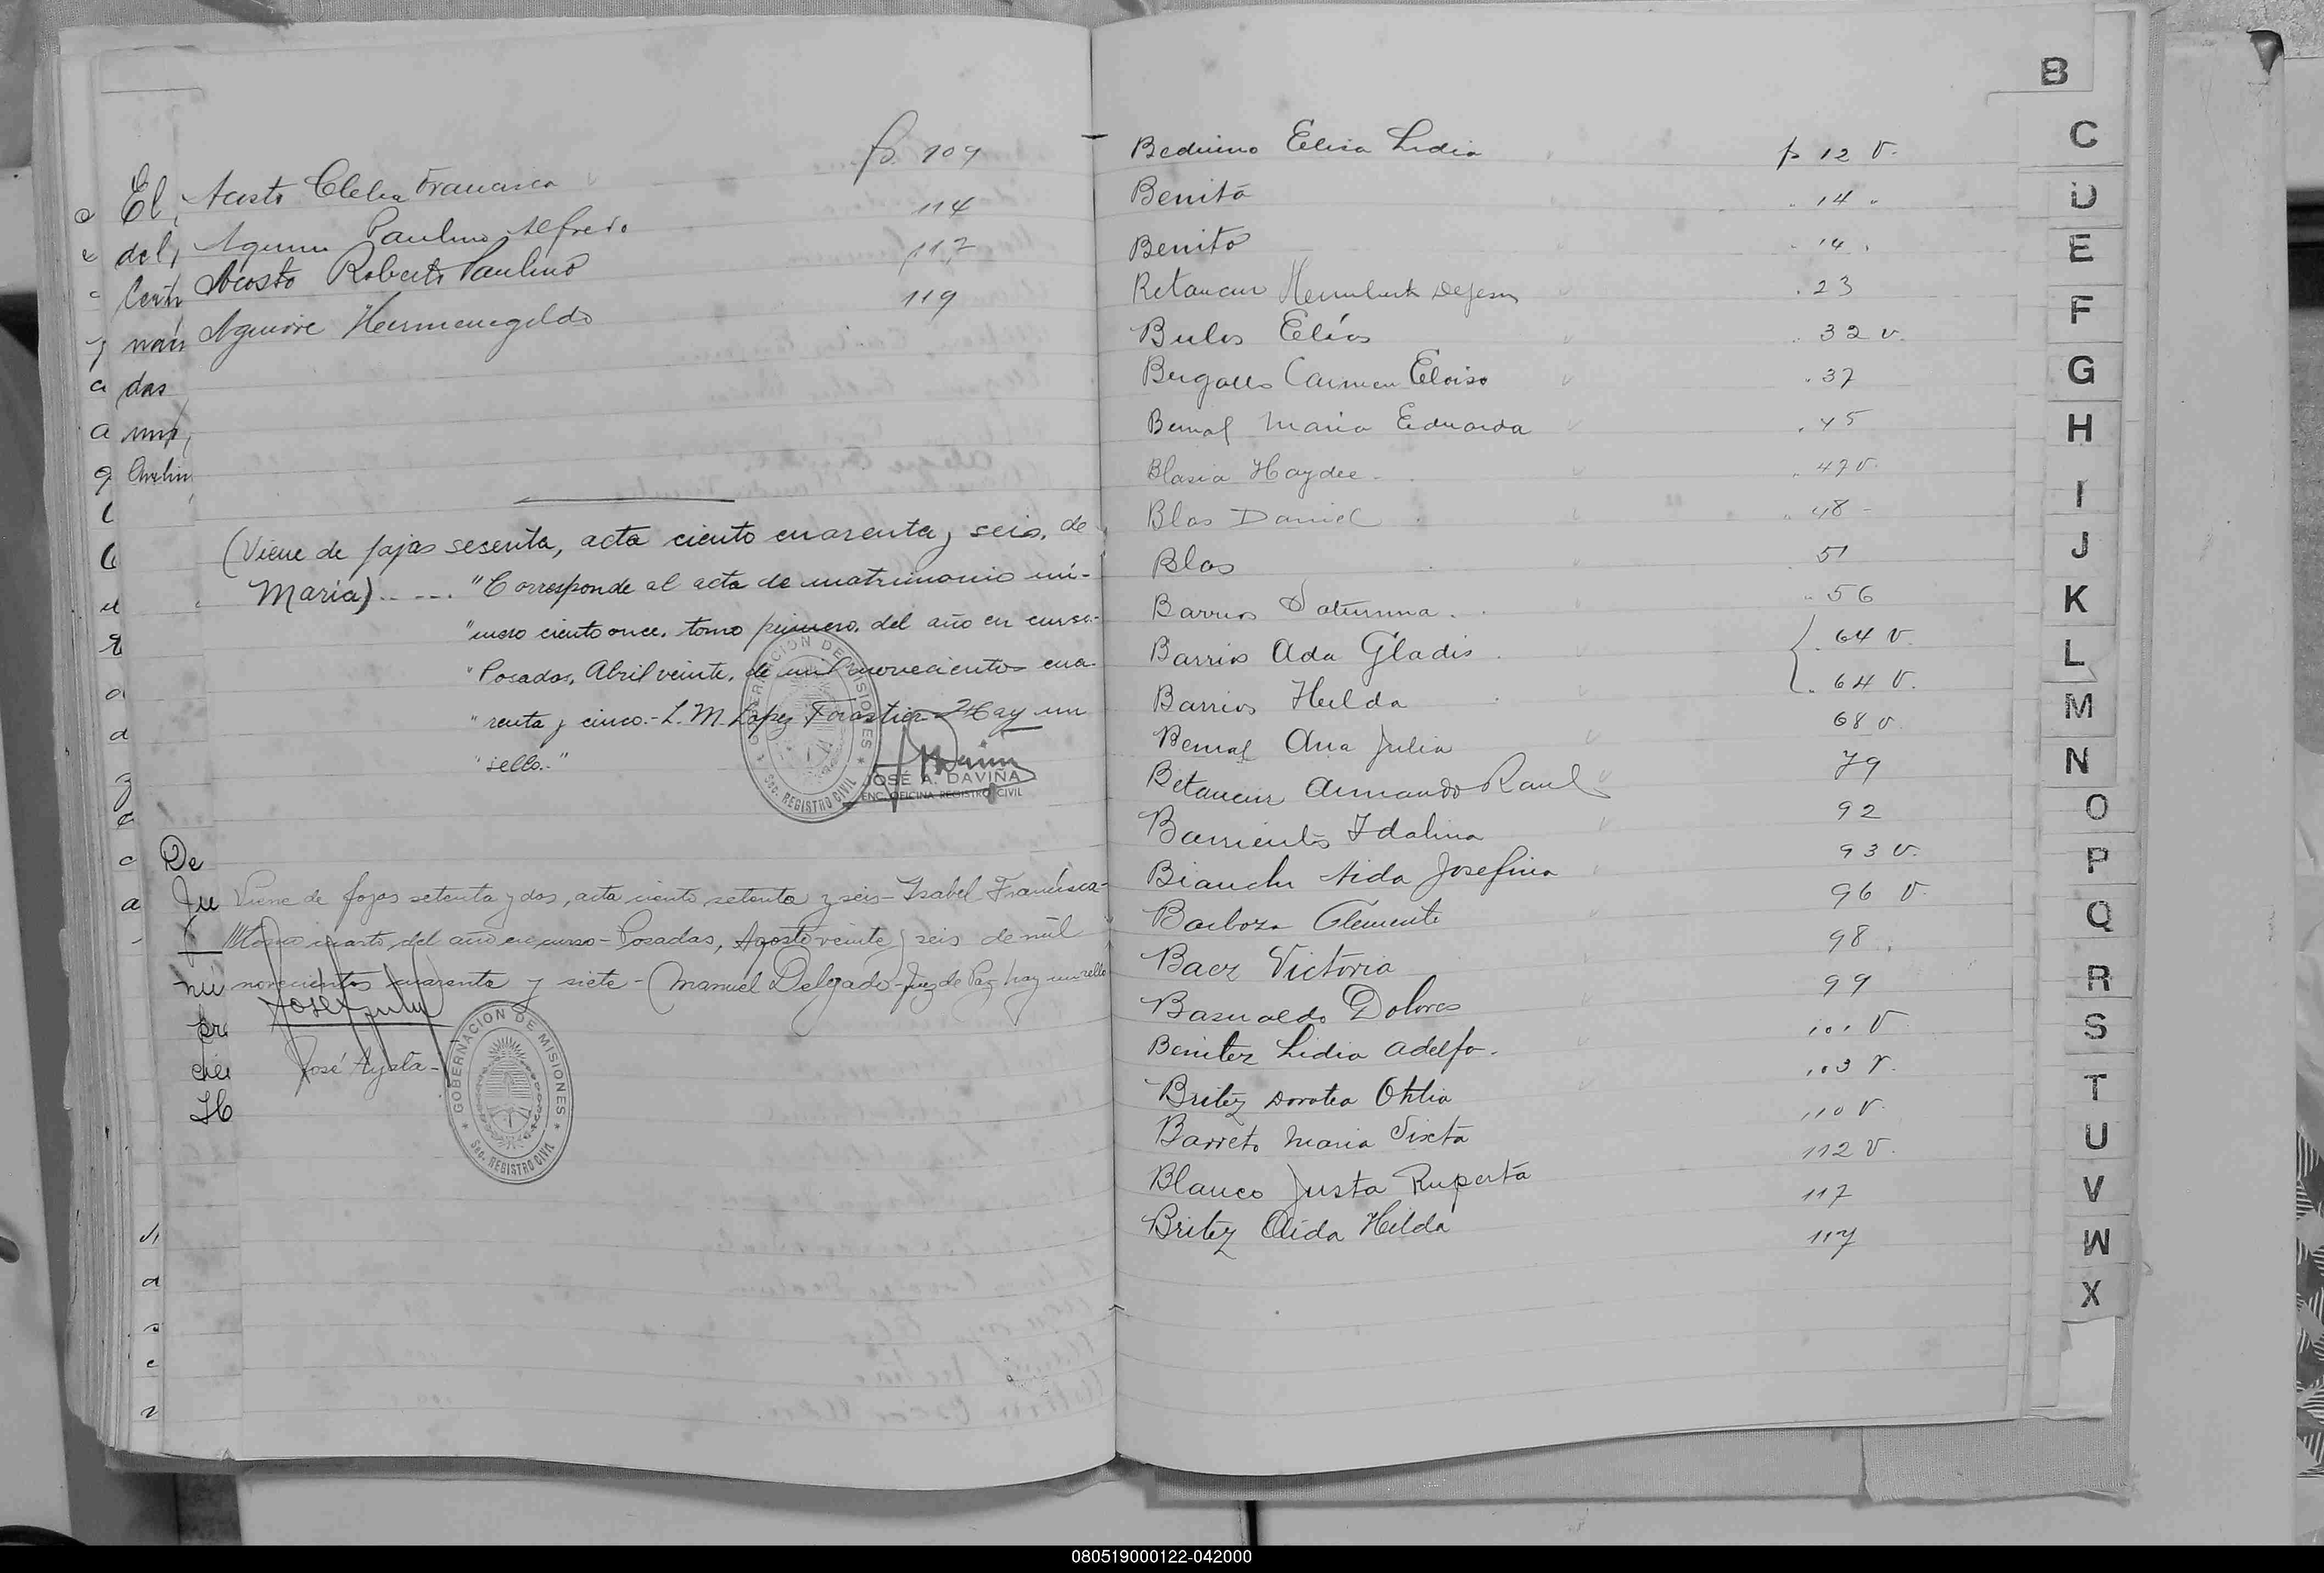 fs. 109
Acosta Clelia Francisca
114
Paulino Alfredo
117
Acosta Roberto Paulino
119
Aguirre Hermenegildo
(Viene de fojas sesenta, acta ciento cuarenta y seis, de
María) ..... "Corresponde al acta de matrimonio nú-
"mero ciento once, tomo primero, del año en curso.-
"Posadas, Abril veinte, de mil novecientos cua-
"renta y cinco.- L. M. Lopez Forastier - Hay un
"sello.-"
GOBERNACION DE MISIONES
Sec. REGISTRO CIVIL
JOSÉ A. DAVIÑA
ENC. OFICINA REGISTRO CIVIL
Viene de fojas setenta y dos, acta ciento setenta y seis - Isabel Francisca-
cuarto, del año en curso - Posadas, Agosto veinte y seis de mil
novecientos cuarenta y siete - (Manuel Delgado - Juez de Paz hay un sello
GOBERNACION DE MISIONES
Sec. REGISTRO CIVIL
El
del
das
De
Ju
B
C
D
E
F
G
H
I
J
K
L
M
N
O
P
Q
R
S
T
U
V
W
X
Elisa Lidia p 12 v.
Benito " 14 "
Benito " 14 "
Betancur . 23
Bulos Elías . 32 v.
Carmen Eloisa . 37
Bernal Maria Eduarda . 45
Blasia Haydee . 47 v.
Blas Daniel . 48 -
Blas 51
Barrios Saturnina . 56
Barrios Ada Gladis . 64 v.
Barrios Hilda . 64 v.
Bernal Ana Julia 68 v.
Betancur Armando Raul 79
Barrientos Idalina 92
Bianchi Aida Josefina 93 v.
Barboza Clemente 96 v.
Baez Victoria 98 .
Basualdo Dolores 99
Benitez Lidia Adelfa. 101 v
Britez Dorotea Otilia 103 v.
Barreto Maria Sixta 110 v.
Blanco Justa Ruperta 112 v.
Britez Aida Hilda 117
117
080519000122-042000